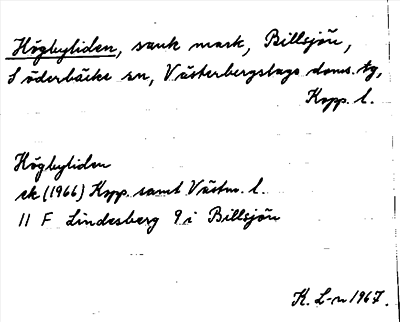 Högbyliden, sank mark, Billsjön,
Söderbärke sn, Västerbergslags doms. tg,
Kopp. l.
Högbyliden
ek (1966) Kopp. samt Västm. l.
11 F Lindesberg 9 i Billsjön
K. L-n 1967.